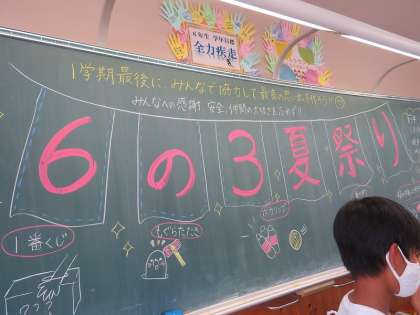 6年生 学年目標
全力疾走
1学期最後に、みんなで協力して最高の思い出を作ろう!!
みんなへの感謝、安全、仲間の大切さをためす!!
6の3夏祭り
1番くじ
もぐらたたき
ボウリング
???